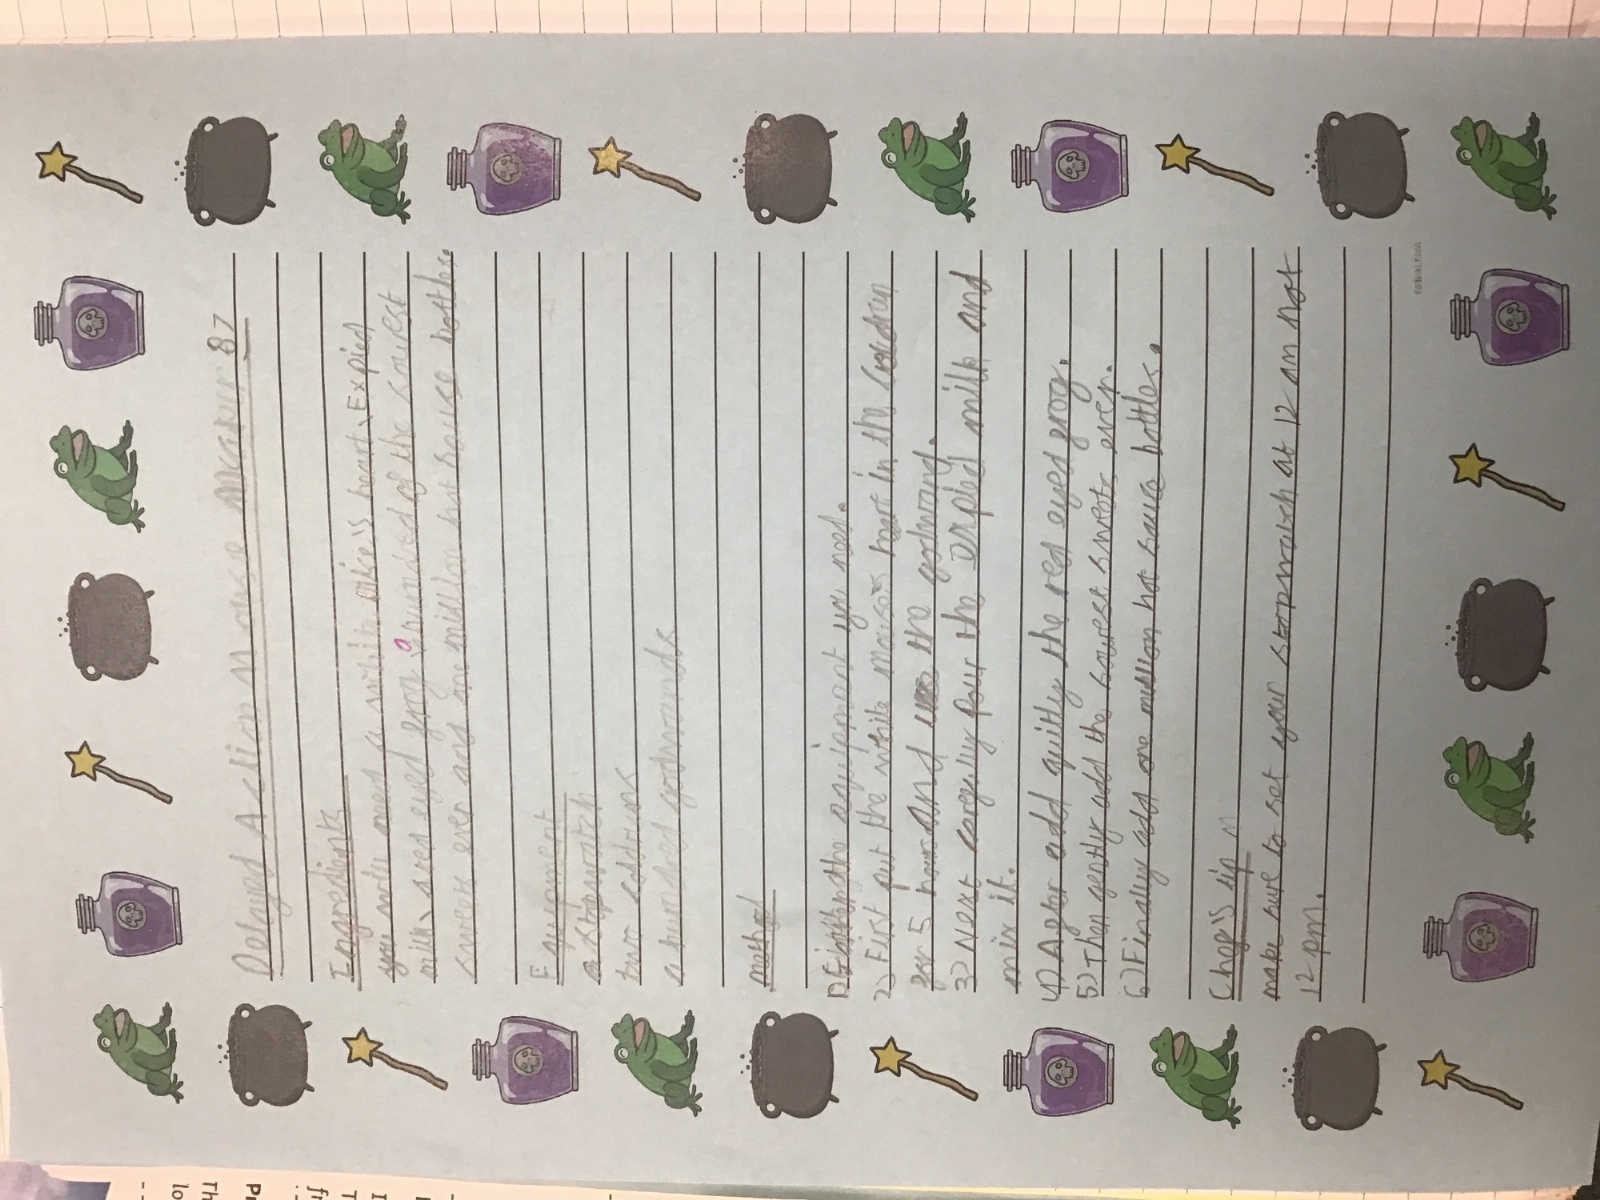 Delayed Action Mouse Maker 87
Ingredients
you will need a white mice's heart, Expied
milk, a red eyed grog, a hundred of the sourest
sweets ever and one million hot sauce bottles.
Equipment
a stopwatch
two coldruns
a hundred godwands
method
1) Gather the equipment you need.
2) First put the white mouses heart in the coldrun
for 5 hours and use the godwand.
3) Next caregelly pour the Expied milk and
mix it.
4) After add quitly the red eyed grog.
5) Then gently add the sourest sweets ever.
6) Finaley add one million hot sauce bottles.
Chef's tip
make sure to set your stopwatch at 12 am not
12 pm.